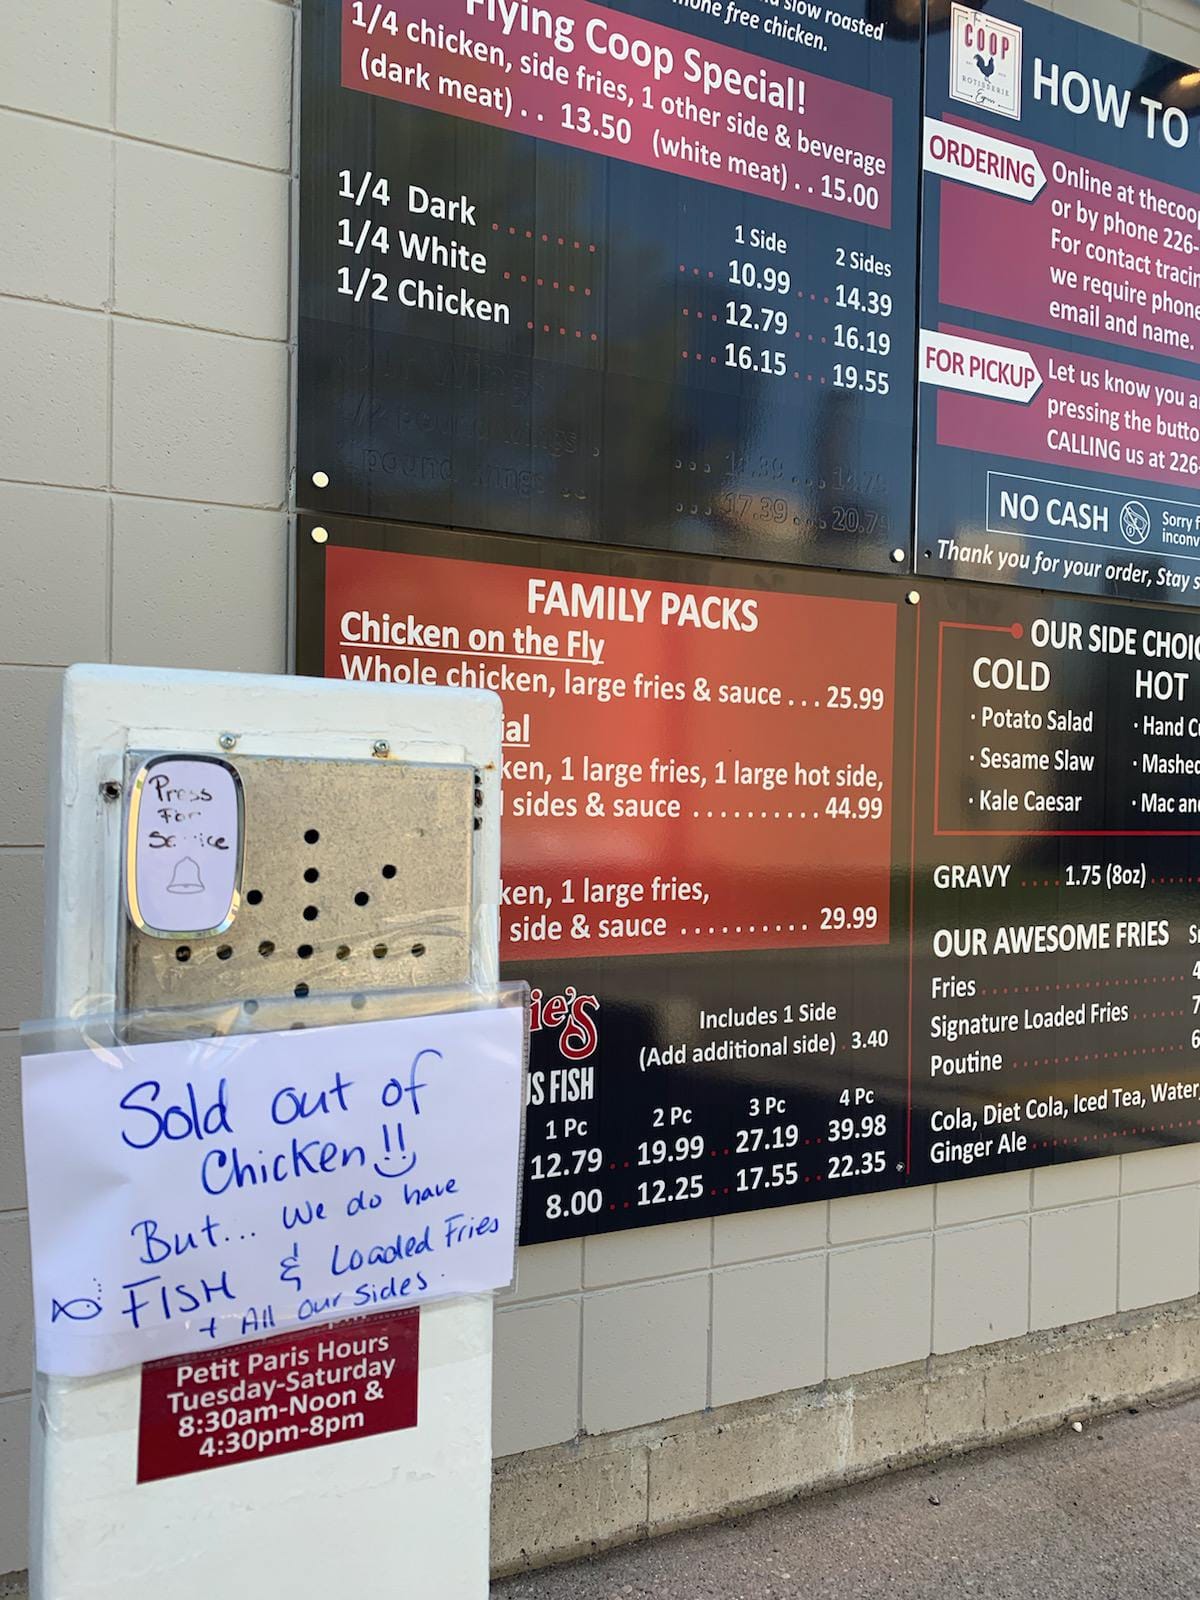 slow roasted
free chicken.
Flying Coop Special!
1/4 chicken, side fries, 1 other side & beverage
(dark meat) . . 13.50 (white meat) . . 15.00
1 Side 2 Sides
1/4 Dark ....... ... 10.99 ... 14.39
1/4 White ...... ... 12.79 ... 16.19
1/2 Chicken ..... ... 16.15 ... 19.55
wings
1/2 pound wings .
pound wings .. ... 17.39 ...
The
COOP
ROTISSERIE
Express
HOW TO
ORDERING
Online at thecoop
or by phone 226-
For contact tracin
we require phone
email and name.
FOR PICKUP
Let us know you a
pressing the butto
CALLING us at 226-
NO CASH
Sorry f
inconv
Thank you for your order, Stay s
FAMILY PACKS
Chicken on the Fly
Whole chicken, large fries & sauce . . . 25.99
ial
ken, 1 large fries, 1 large hot side,
sides & sauce .......... 44.99
ken, 1 large fries,
side & sauce .......... 29.99
ie's
US FISH
Includes 1 Side
(Add additional side) . 3.40
1 Pc 2 Pc 3 Pc 4 Pc
12.79 .. 19.99 .. 27.19 .. 39.98
8.00 .. 12.25 .. 17.55 .. 22.35
OUR SIDE CHOIC
COLD
· Potato Salad
· Sesame Slaw
· Kale Caesar
HOT
· Hand Cu
· Mashed
· Mac and
GRAVY .... 1.75 (8oz) .....
OUR AWESOME FRIES
Fries
Signature Loaded Fries
Poutine
Cola, Diet Cola, Iced Tea, Water,
Ginger Ale
Press
For
Se  ice
Sold out of
Chicken!!
But... We do have
FISH & Loaded Fries
+ All Our Sides.
Petit Paris Hours
Tuesday-Saturday
8:30am-Noon &
4:30pm-8pm